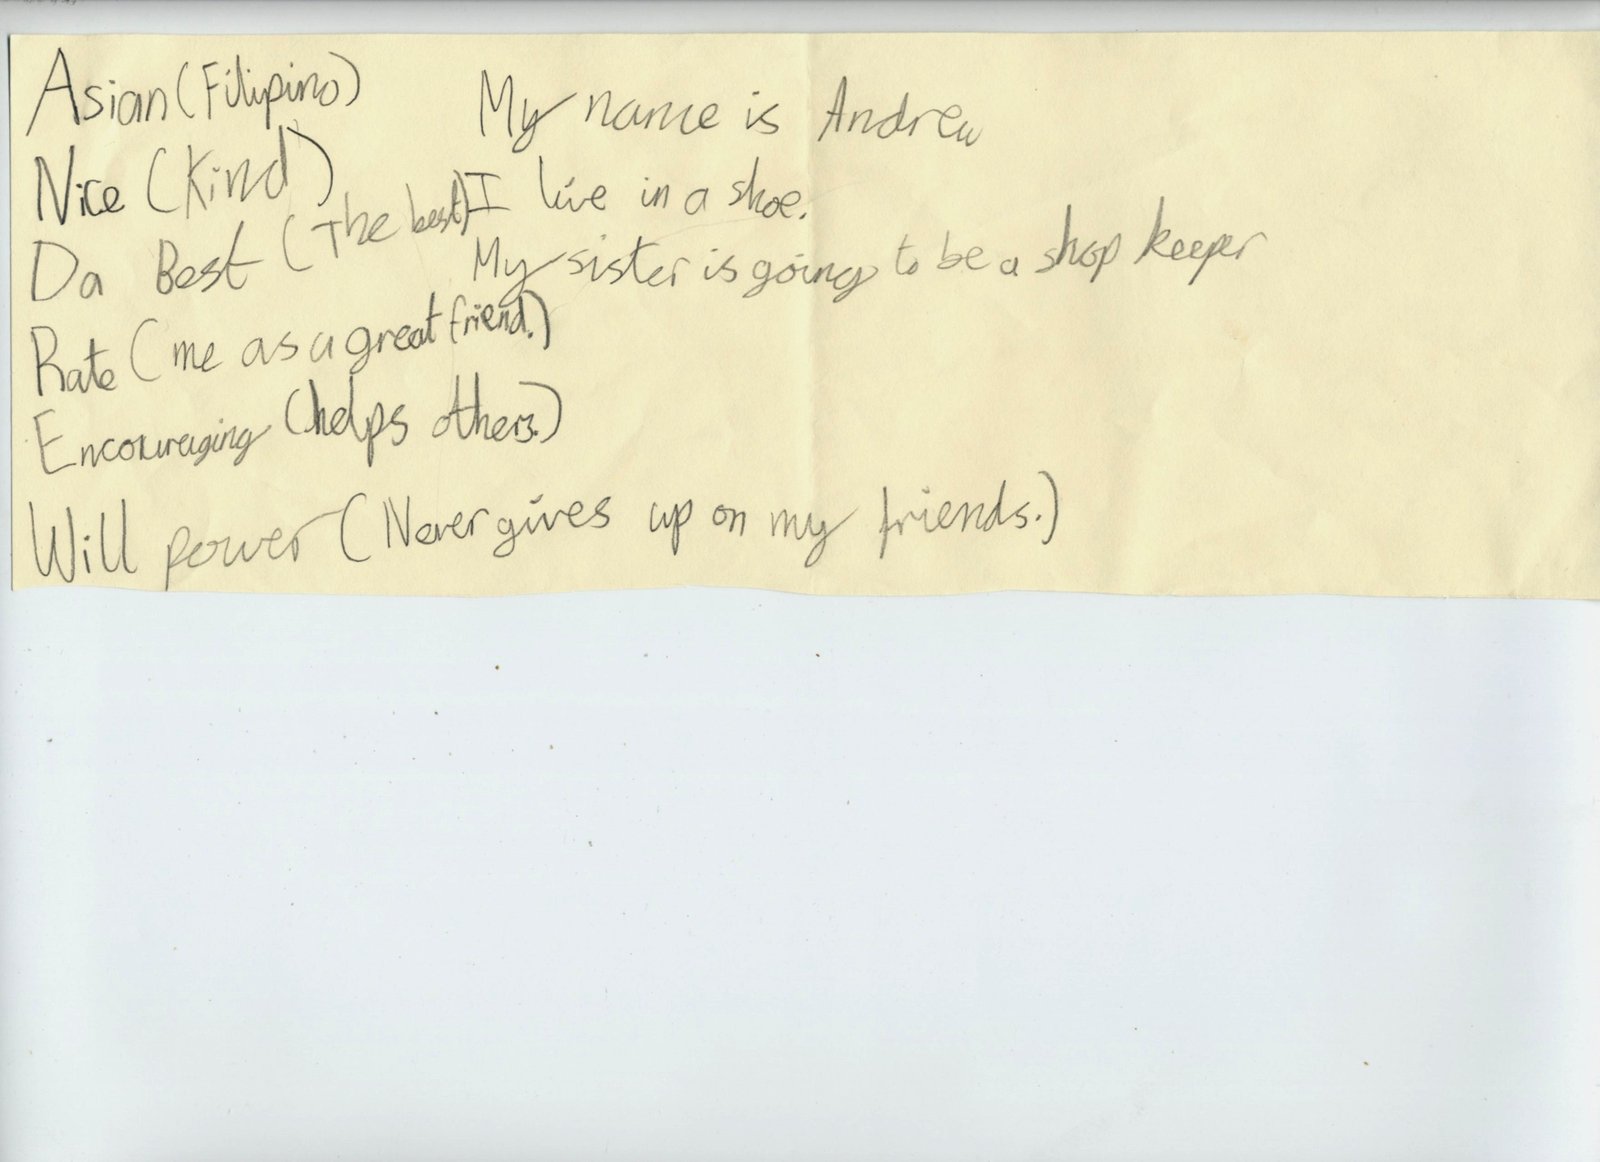 Asian (Filipino)
Nice (Kind)
Da Best (The best)
Rate (me as a great friend.)
Encouraging (helps others.)
Will power (Never gives up on my friends.)
My name is Andrew
I live in a shoe.
My sister is going to be a shop keeper